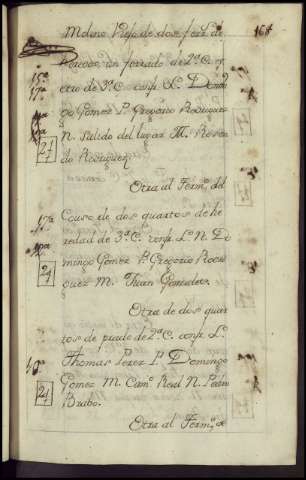 Molino Viejo de dos ferr.s de 164
Nercore, un ferrado de 2.ª C. y
otro de 3.ª C. conf. L.e Domin
go Gomez P. Gregorio Rodriguez
N. salido del lugar M. Rosen
do Rodriguez.
Otra al Term.no del
Couso de dos quartos de he
redad de 3.ª C. conf. L.e N. Do
mingo Gomez P. Gregorio Rodri
guez M. Juan Gonzalez.
Otra de dos quar
tos de prado de 2.ª C. conf. L.e
Thomas Perez P. Domingo
Gomez M. Cam.o Real N. Pedro
Brabo.
Otra al Term.no de